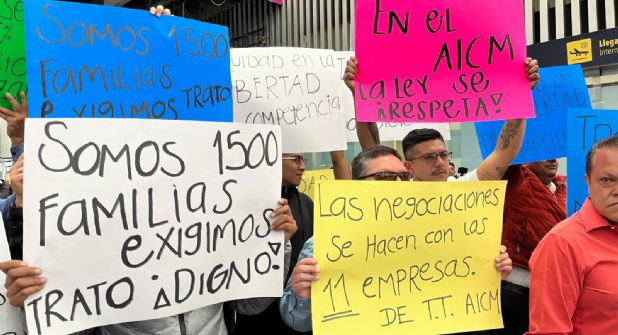 Somos 1500
Familias
exigimos TRATO
UIDAD EN la
IBERTAD
competencia
EN EL
AICM
LA LEY SE
¡RESPETA!
Llega
Intern
BERTAD
DE
TR
Somos 1500
Familias
exigimos
TRATO ¡DIGNO!
Las negociaciones
se Hacen con las
11 empresas.
DE T.T. AICM